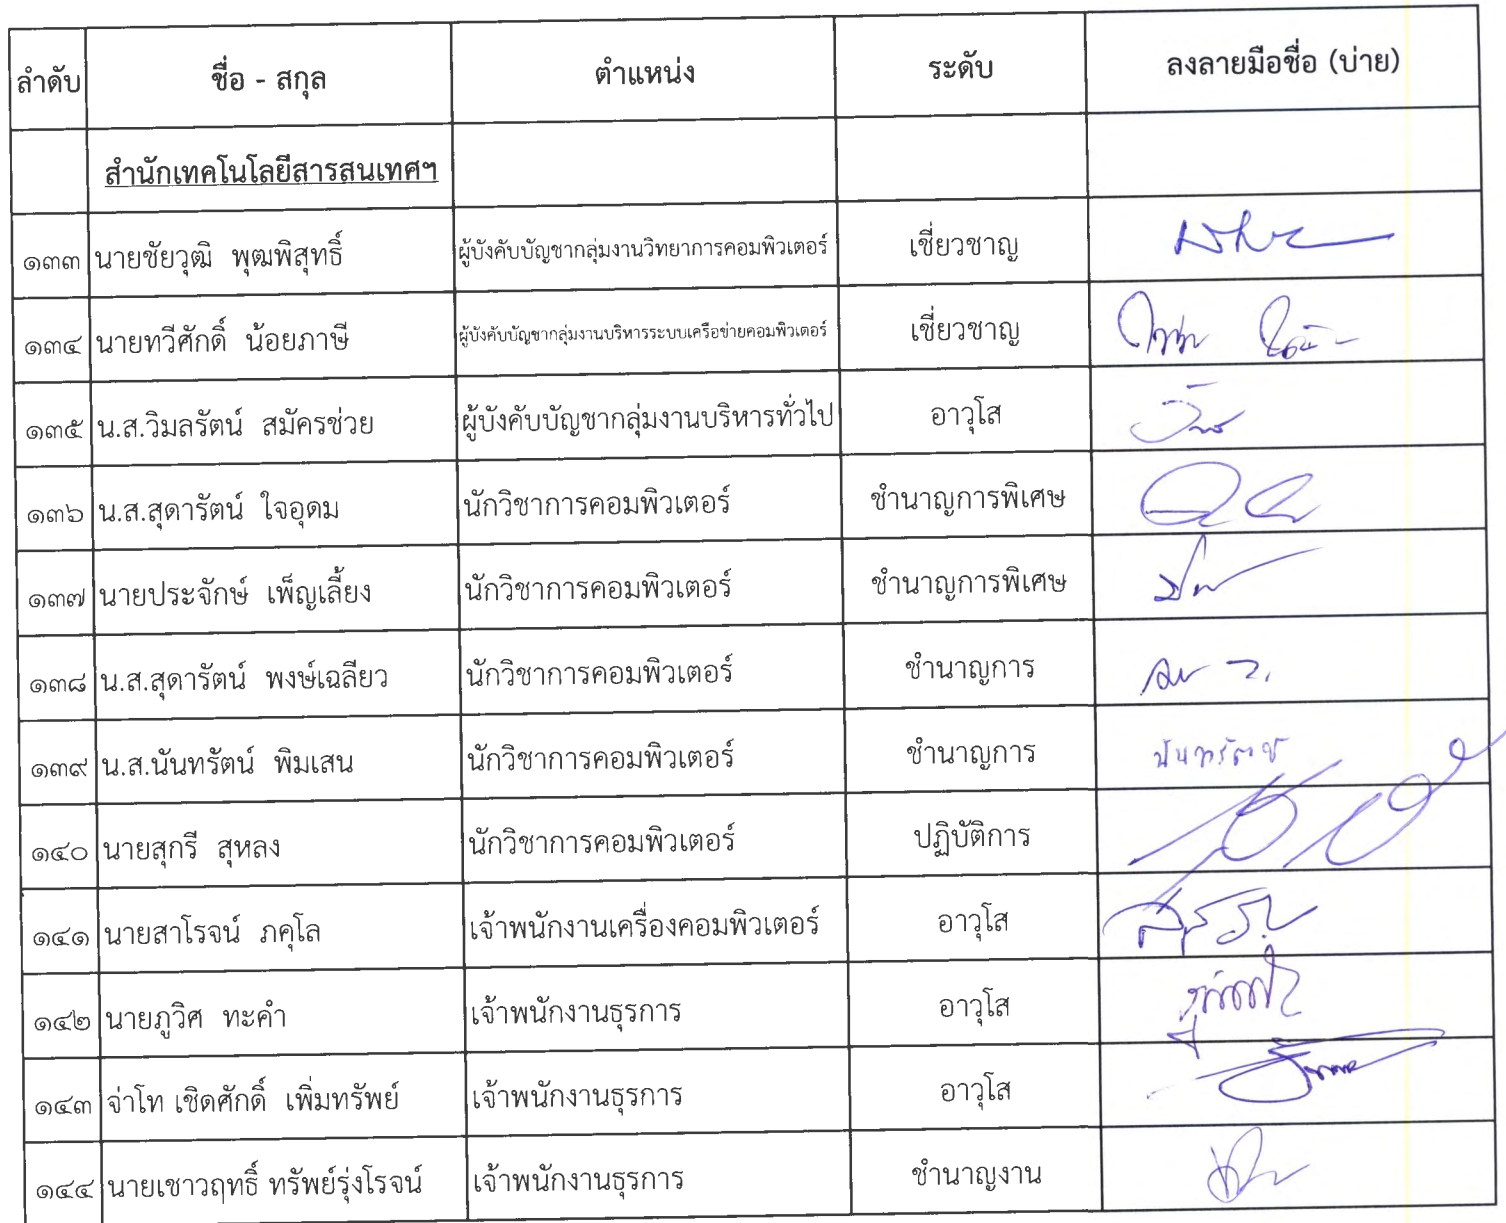 ลำดับ ชื่อ - สกุล ตำแหน่ง ระดับ ลงลายมือชื่อ (บ่าย)
สำนักเทคโนโลยีสารสนเทศฯ
๑๓๓ นายชัยวุฒิ พุฒพิสุทธิ์ ผู้บังคับบัญชากลุ่มงานวิทยาการคอมพิวเตอร์ เชี่ยวชาญ
๑๓๔ นายทวีศักดิ์ น้อยภาษี ผู้บังคับบัญชากลุ่มงานบริหารระบบเครือข่ายคอมพิวเตอร์ เชี่ยวชาญ
๑๓๕ น.ส.วิมลรัตน์ สมัครช่วย ผู้บังคับบัญชากลุ่มงานบริหารทั่วไป อาวุโส
๑๓๖ น.ส.สุดารัตน์ ใจอุดม นักวิชาการคอมพิวเตอร์ ชำนาญการพิเศษ
๑๓๗ นายประจักษ์ เพ็ญเลี้ยง นักวิชาการคอมพิวเตอร์ ชำนาญการพิเศษ
๑๓๘ น.ส.สุดารัตน์ พงษ์เฉลียว นักวิชาการคอมพิวเตอร์ ชำนาญการ
๑๓๙ น.ส.นันทรัตน์ พิมเสน นักวิชาการคอมพิวเตอร์ ชำนาญการ นันทรัตน์
๑๔๐ นายสุกรี สุหลง นักวิชาการคอมพิวเตอร์ ปฏิบัติการ
๑๔๑ นายสาโรจน์ ภคุโล เจ้าพนักงานเครื่องคอมพิวเตอร์ อาวุโส
๑๔๒ นายภูวิศ ทะคำ เจ้าพนักงานธุรการ อาวุโส
๑๔๓ จ่าโท เชิดศักดิ์ เพิ่มทรัพย์ เจ้าพนักงานธุรการ อาวุโส
๑๔๔ นายเชาวฤทธิ์ ทรัพย์รุ่งโรจน์ เจ้าพนักงานธุรการ ชำนาญงาน